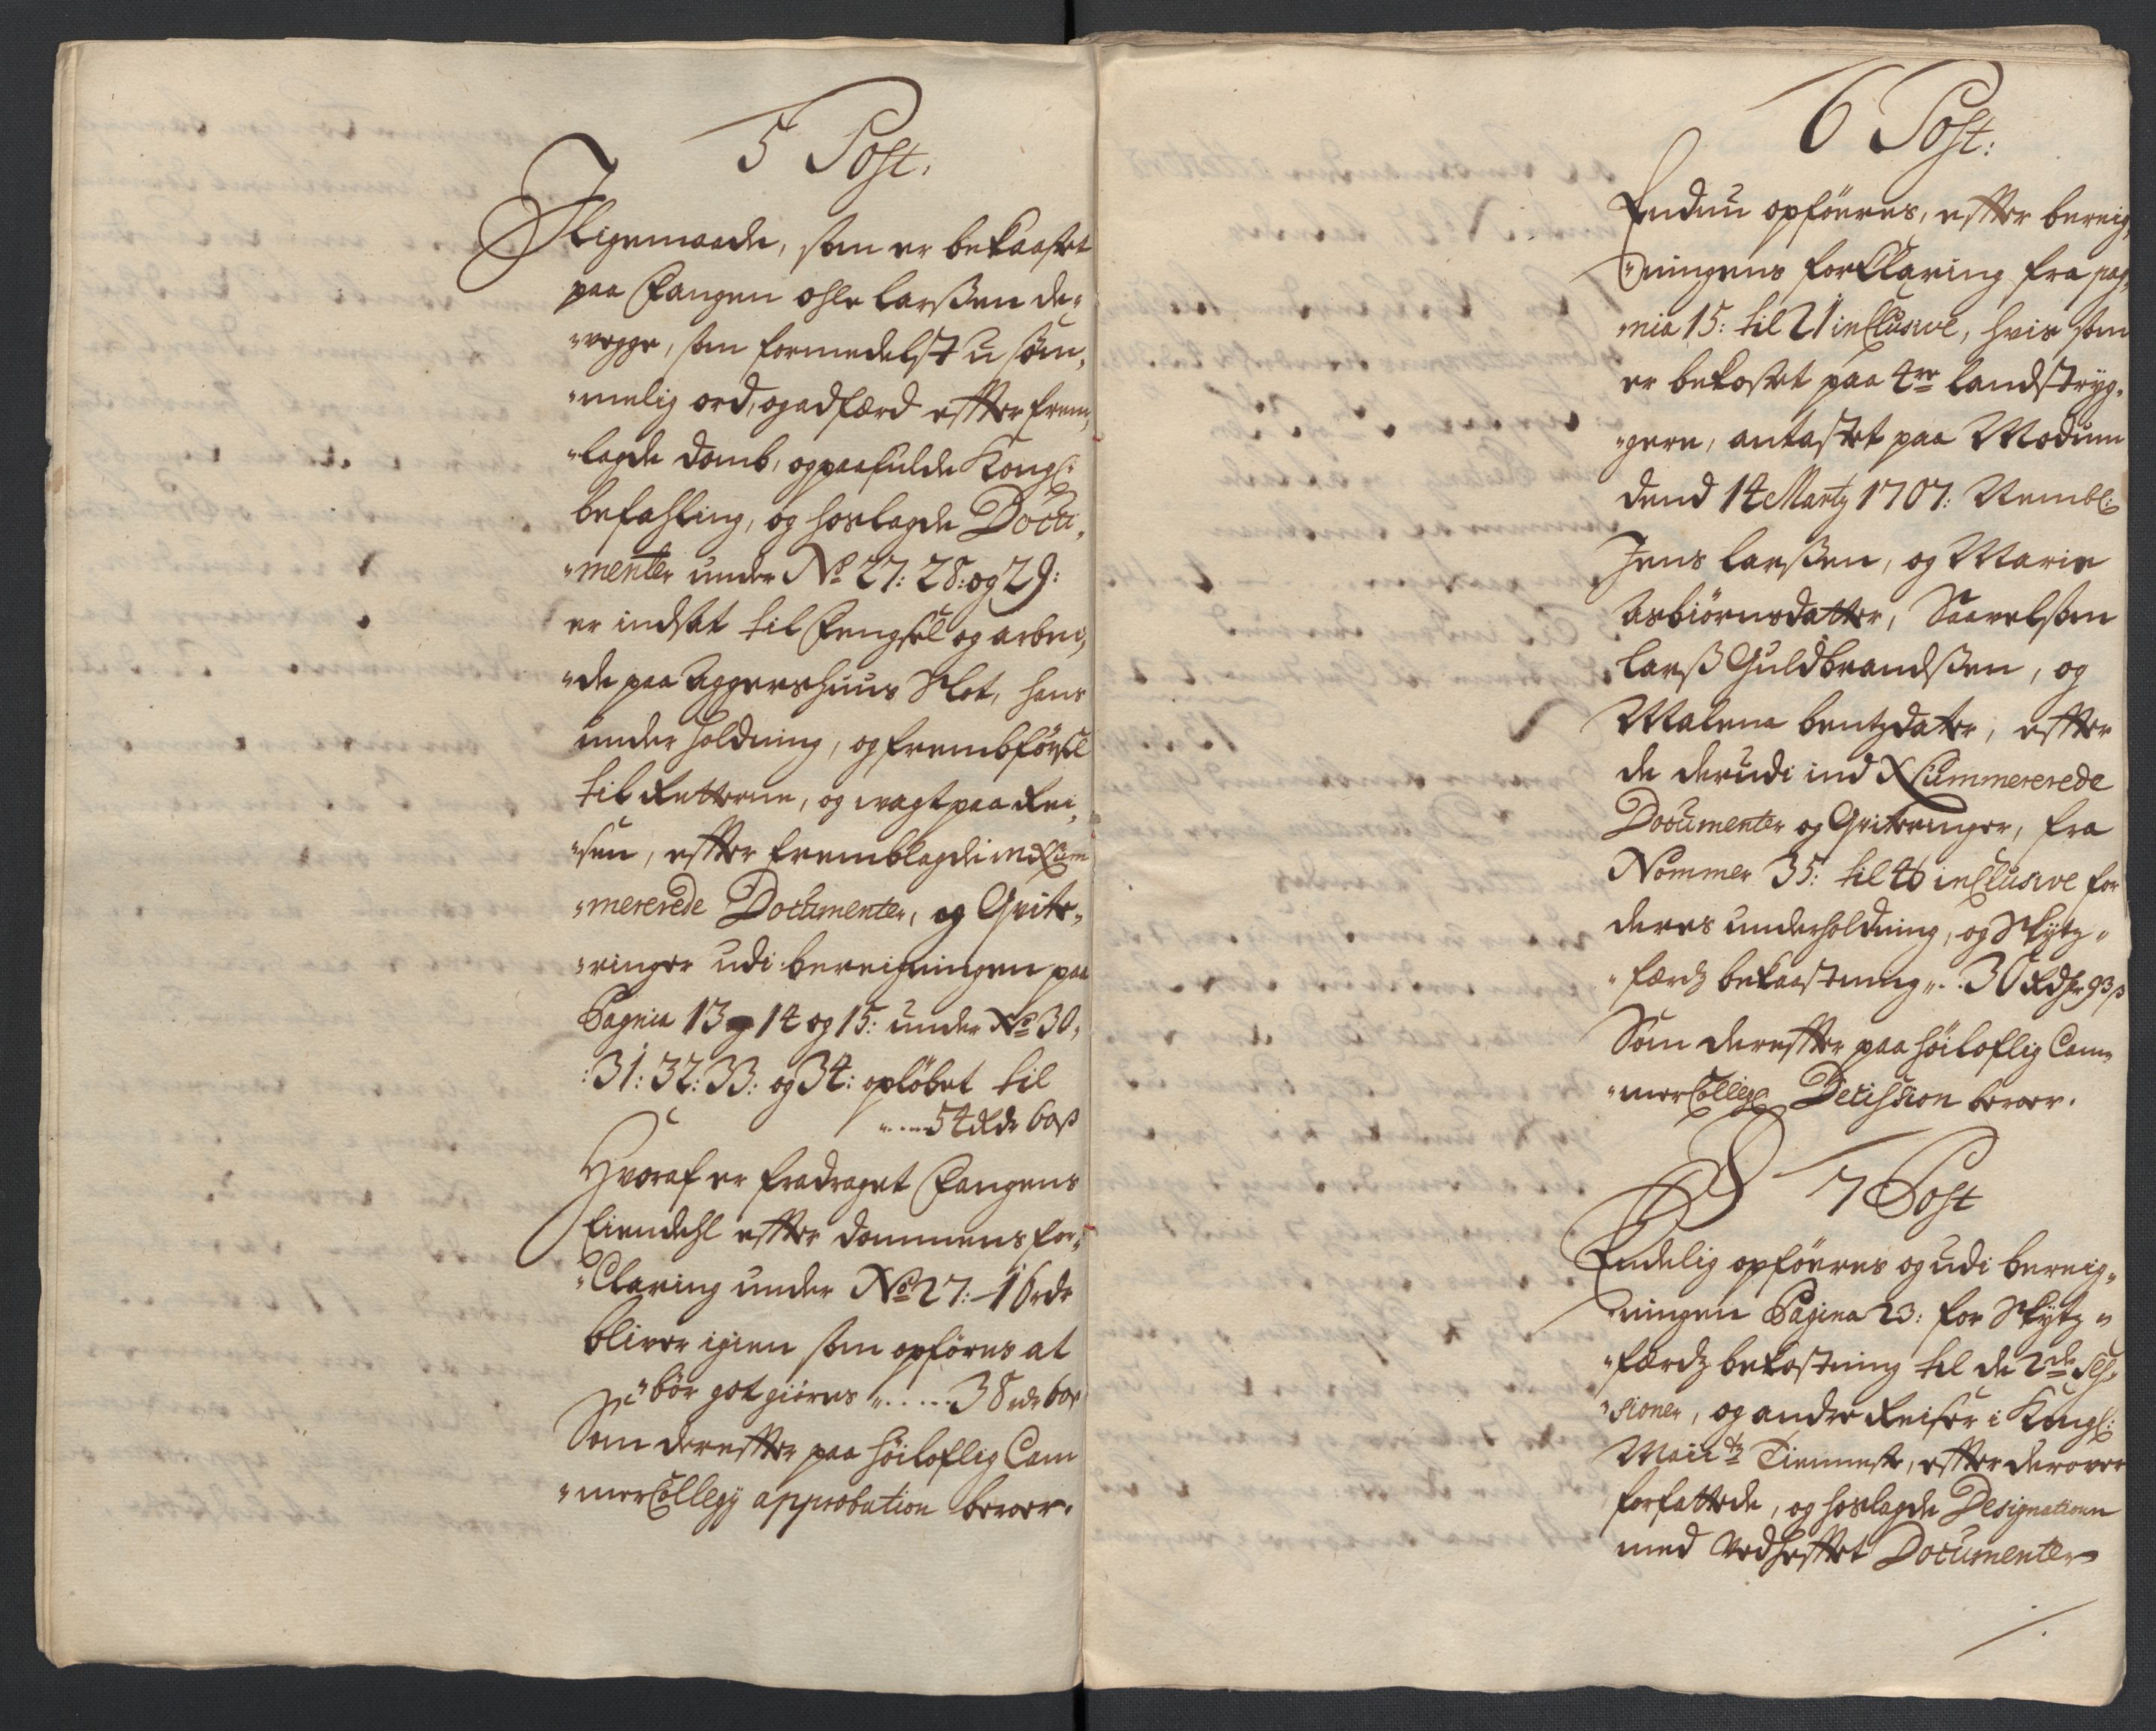 5 Post.
Jligemaade, som er bekaastet
paa Fangen ohle larßen de¬
"vegge, som formedelst u søm¬
"melig ord, og adfærd efter frem¬
"lagde domb, og paafulde Kongl:
befahling, og hoslagde Docu¬
"menter under No 27: 28: og 29:
er indsat til Fengsel og arbei¬
"de paa Aggershuus Slot, hans
under holdning, og frembførsel
til Retterne, og wagt paa Rei¬
"sen, efter fremblagde indNum
"mererede Documenter, og Qvite¬
"ringer udi bereigningen paa
Pagnia 13 og 14 og 15: under No 30,
:31: 32: 33: og 34: opløbet til
"....54 Rdr 60ß
Hvoraf er fradraget Fangens
Eiendehl efter dommens for¬
"Claring under No 27: 16 rdr
bliver igien som opføres at
bør got giøres ".....38 rdr 60ß
Som derefter paa høiloflig Cam
"merCollegij approbation beroer.
6 Post:
Endnu opføeres, efter bereig¬
"ningens forklaring fra pag¬
"nia 15: til 21 inclusive, hvis som
er bekostet paa 4re landstryg¬
"gere, antastet paa Modum
dend 14 Martij 1707: Nembl:
Jens larßen, og Marie
Asbiørnsdatter, Saavelsom
larß Guldbrandßen, og
Malena bentzdater, efter
de derudi ind Nummererede
Documenter og Qviteringer, fra
Nommer 35: til 46 inclusive for
deres underholdning, og Skytz¬
"færdz bekaastning "..30 Rdr 93ß
Som derefter paa høiloflig Cam¬
"merCollegij Decission beroer.
7 Post
Endelig opføeres og udi bereig¬
"ningen Pagina 23: for Skytz¬
"færdz bekostning til de 2de Ses¬
"sioner, og andre Reiser i Kongl:
Maii tz Tienneste, efter derover
forfattede, og hoslagde Designation
med Vedheftet Documenter